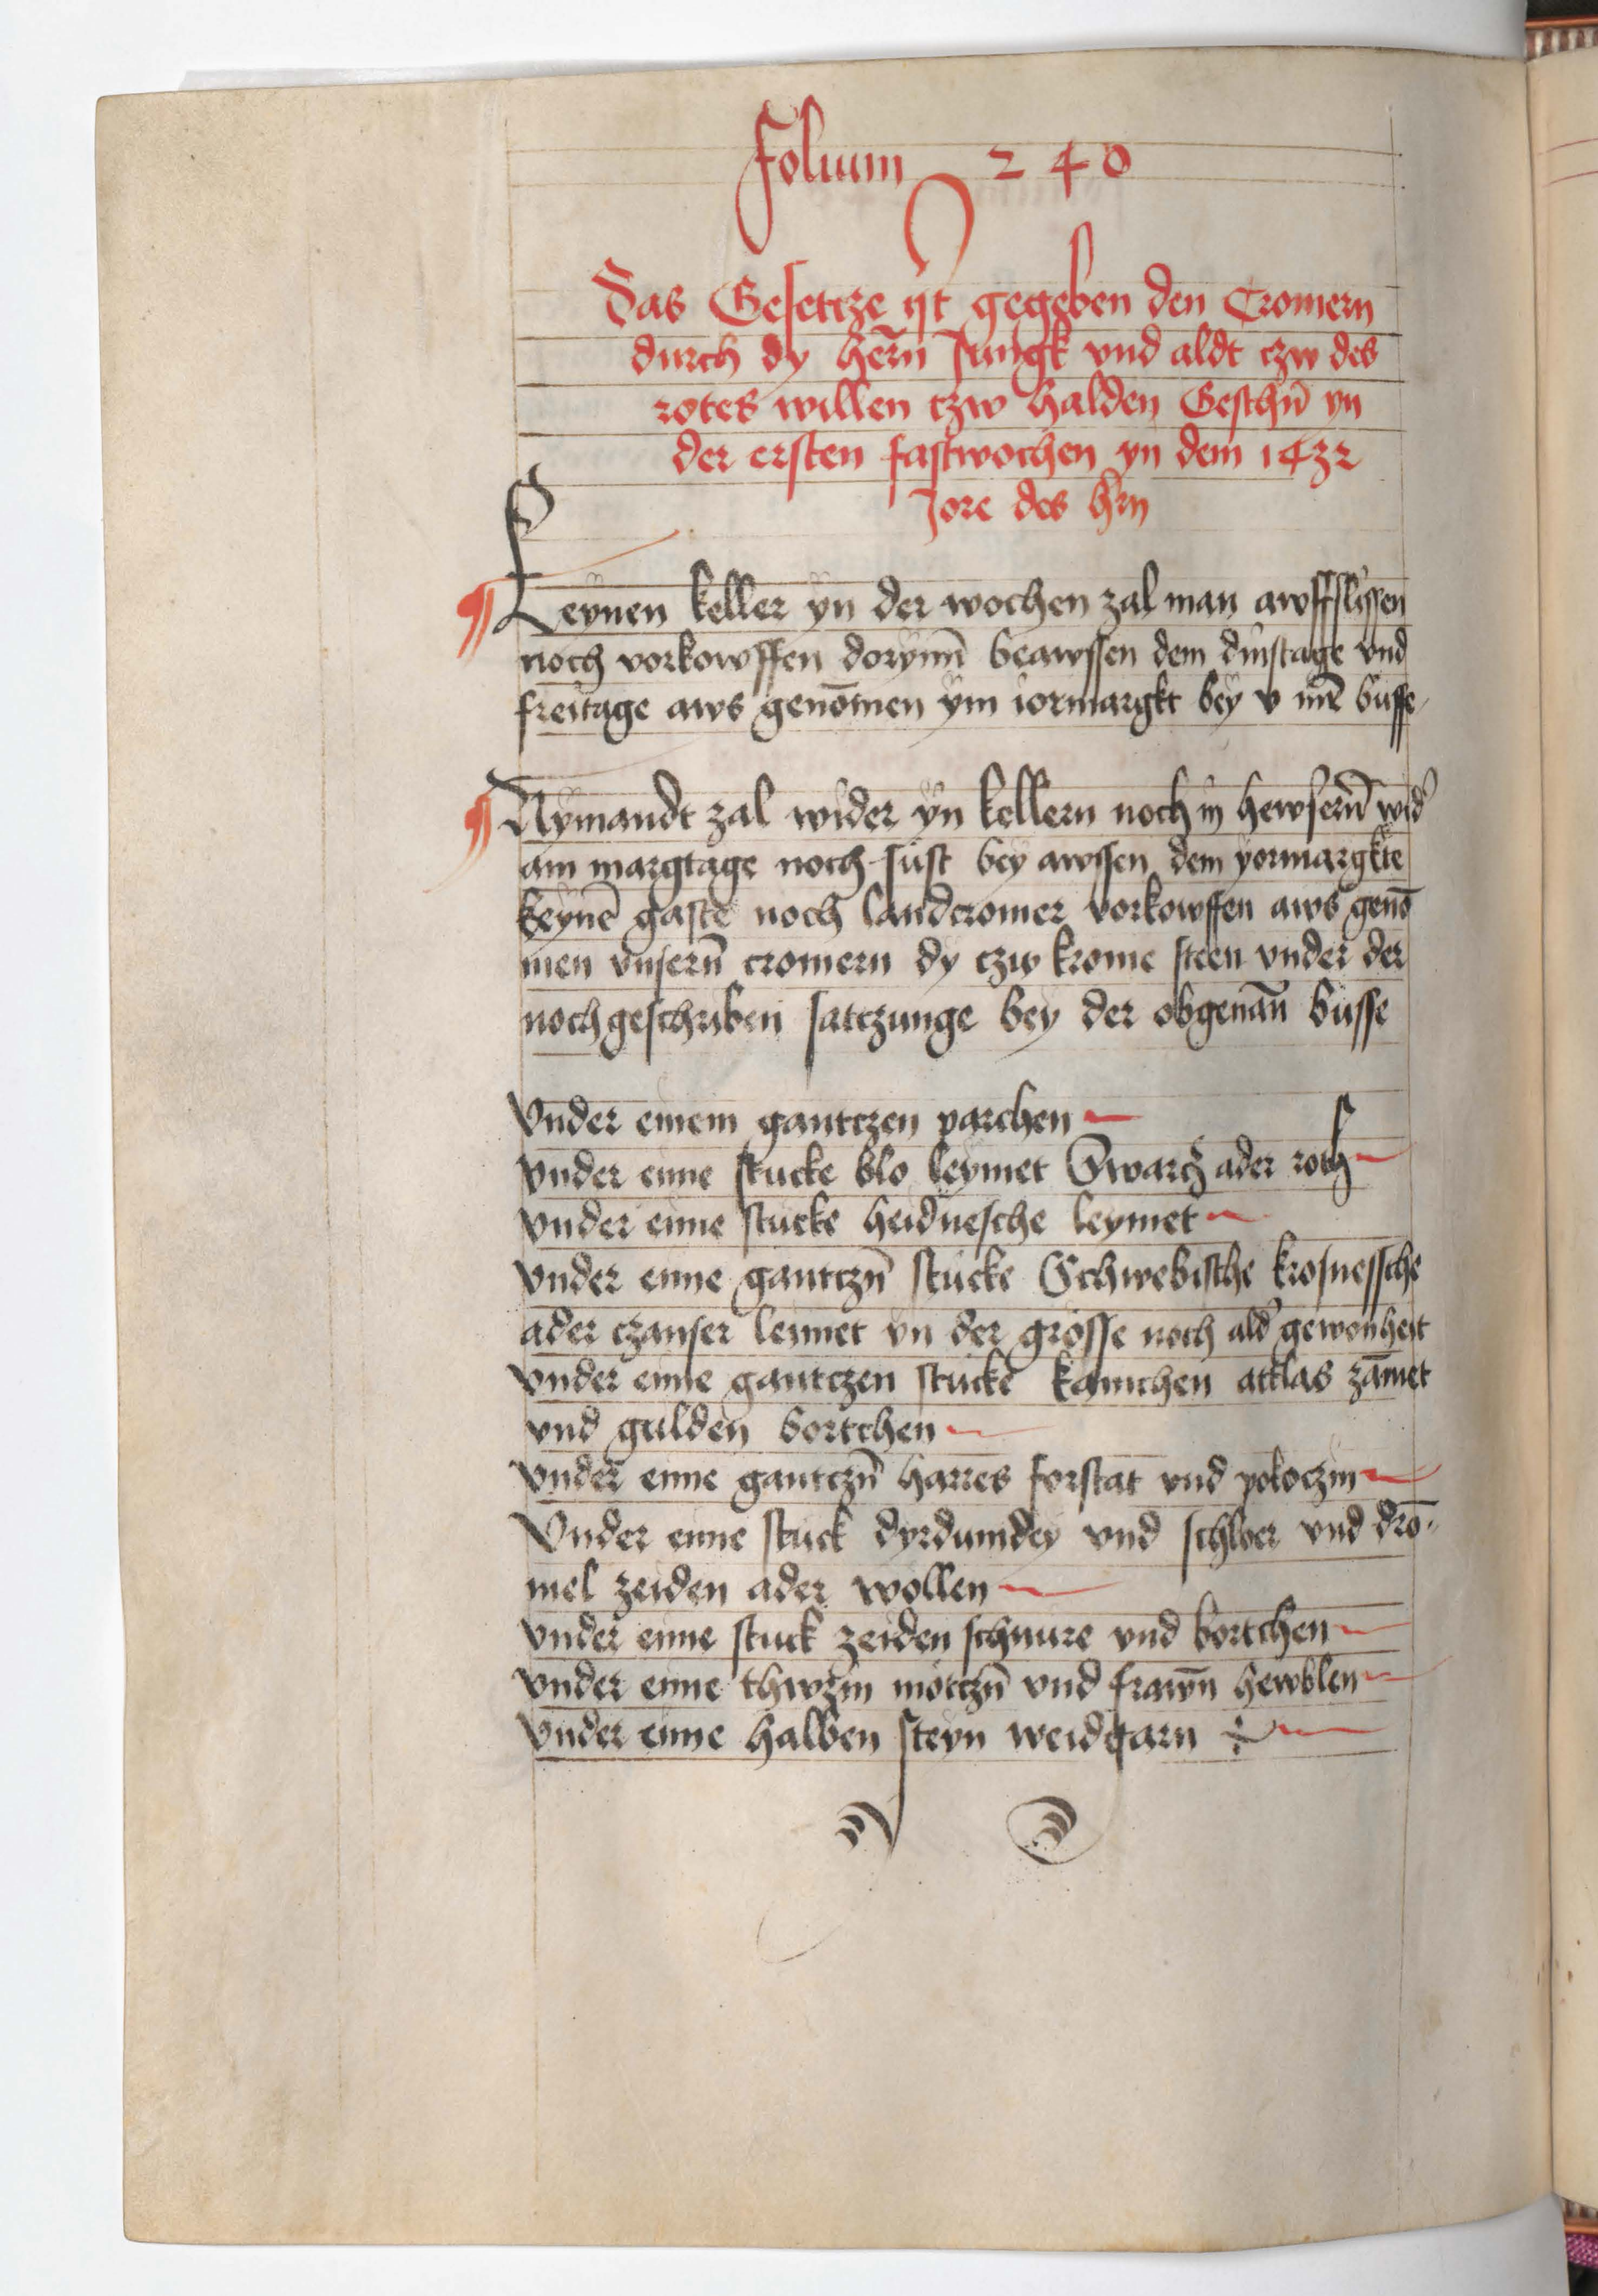 Folium 240
Das Gesetcze ist gegeben den Cromern
durch dy hern̄ Jungk vnd aldt czw des
rotes willen czw halden Geschn̄ yn
der ersten fastwochen yn dem 1432
Jore des hrn
Keynen keller yn der wochen zal man awffslissen
noch vorkowffen dorynn̄ beawssen dem dinstage vnd
freitage aws genōmen ym iormargkt bey v mr̄ busse
Nymandt zal wider yn kellern noch in hewsern̄ wid'
am margtage noch sust bey awssen dem yormargkte
keynē gaste noch landcromer vorkowffen aws genō
men vnsern̄ cromern dy czw krome steen vnder der
nochgeschriben sattzunge bey der obgenan̄ busse
Vnder einem gantczen parchen
vnder eyme stucke blo leymet Swarcz ader roth
vnder eyme stucke heidnesche leymet
vnder eyme gantczn̄ stucke Schwebische krosnessche
ader czanser leymet yn der grosse noch ald' gewonheit
vnder eyme gantczen stucke kamchen attlas zāmet
vnd gulden bortchen
vnder eyme gantczn̄ harres forstat vnd pokoczin
Vnder eyme stuck dyrdumdey vnd schloer vnd drō-
mel zeiden ader wollen
vnder eyme stuck zeiden schnure vnd bortchen
vnder eyme thwczin motczn̄ vnd frawn̄ hewblen
vnder eyme halben steyn weidgarn